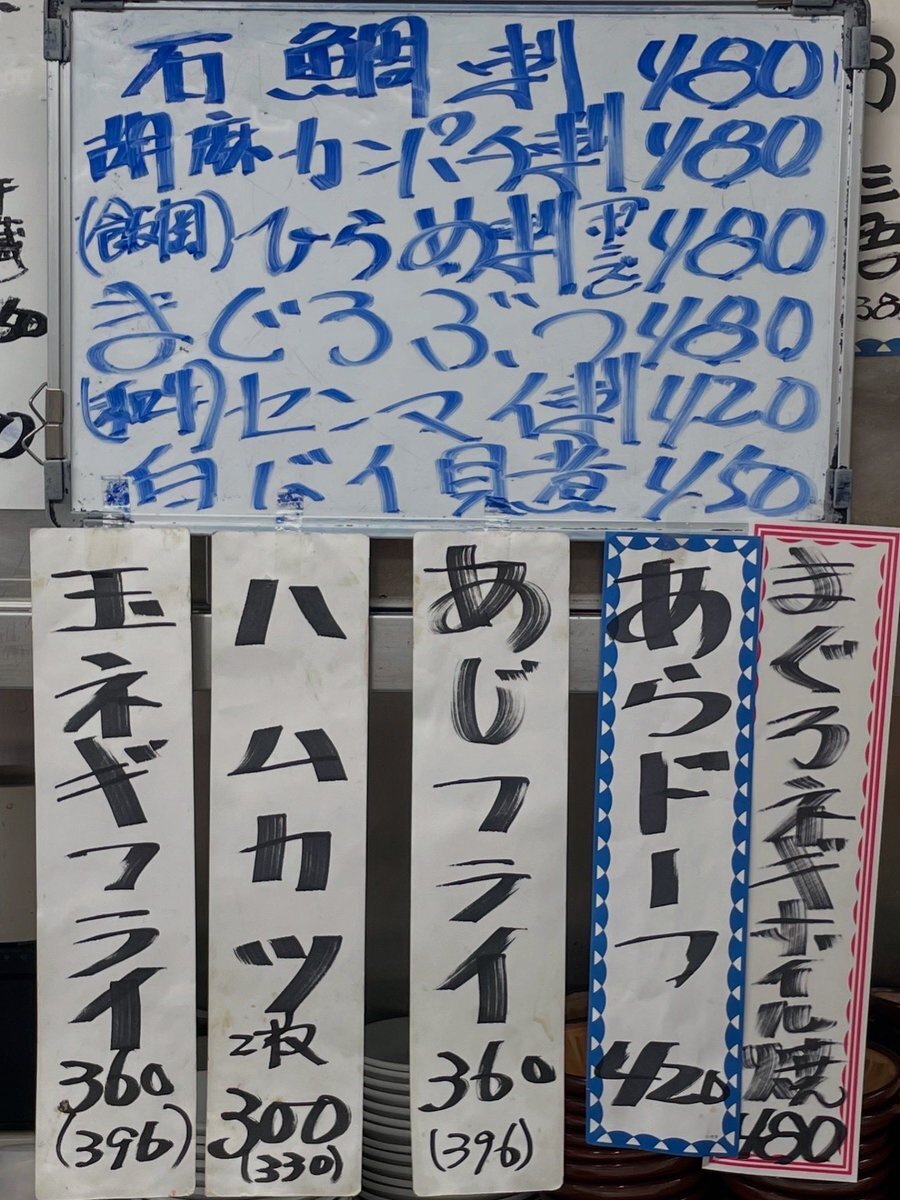 石鯛刺 480
胡麻カンパチ刺 480
(飯岡)ひらめ刺 480
まぐろぶつ 480
センマイ刺 420
白バイ貝煮 450
玉ネギフライ
360
(396)
ハムカツ
2枚
300
(330)
あじフライ
360
(396)
あらドーフ
420
まぐろネギホイル焼
480